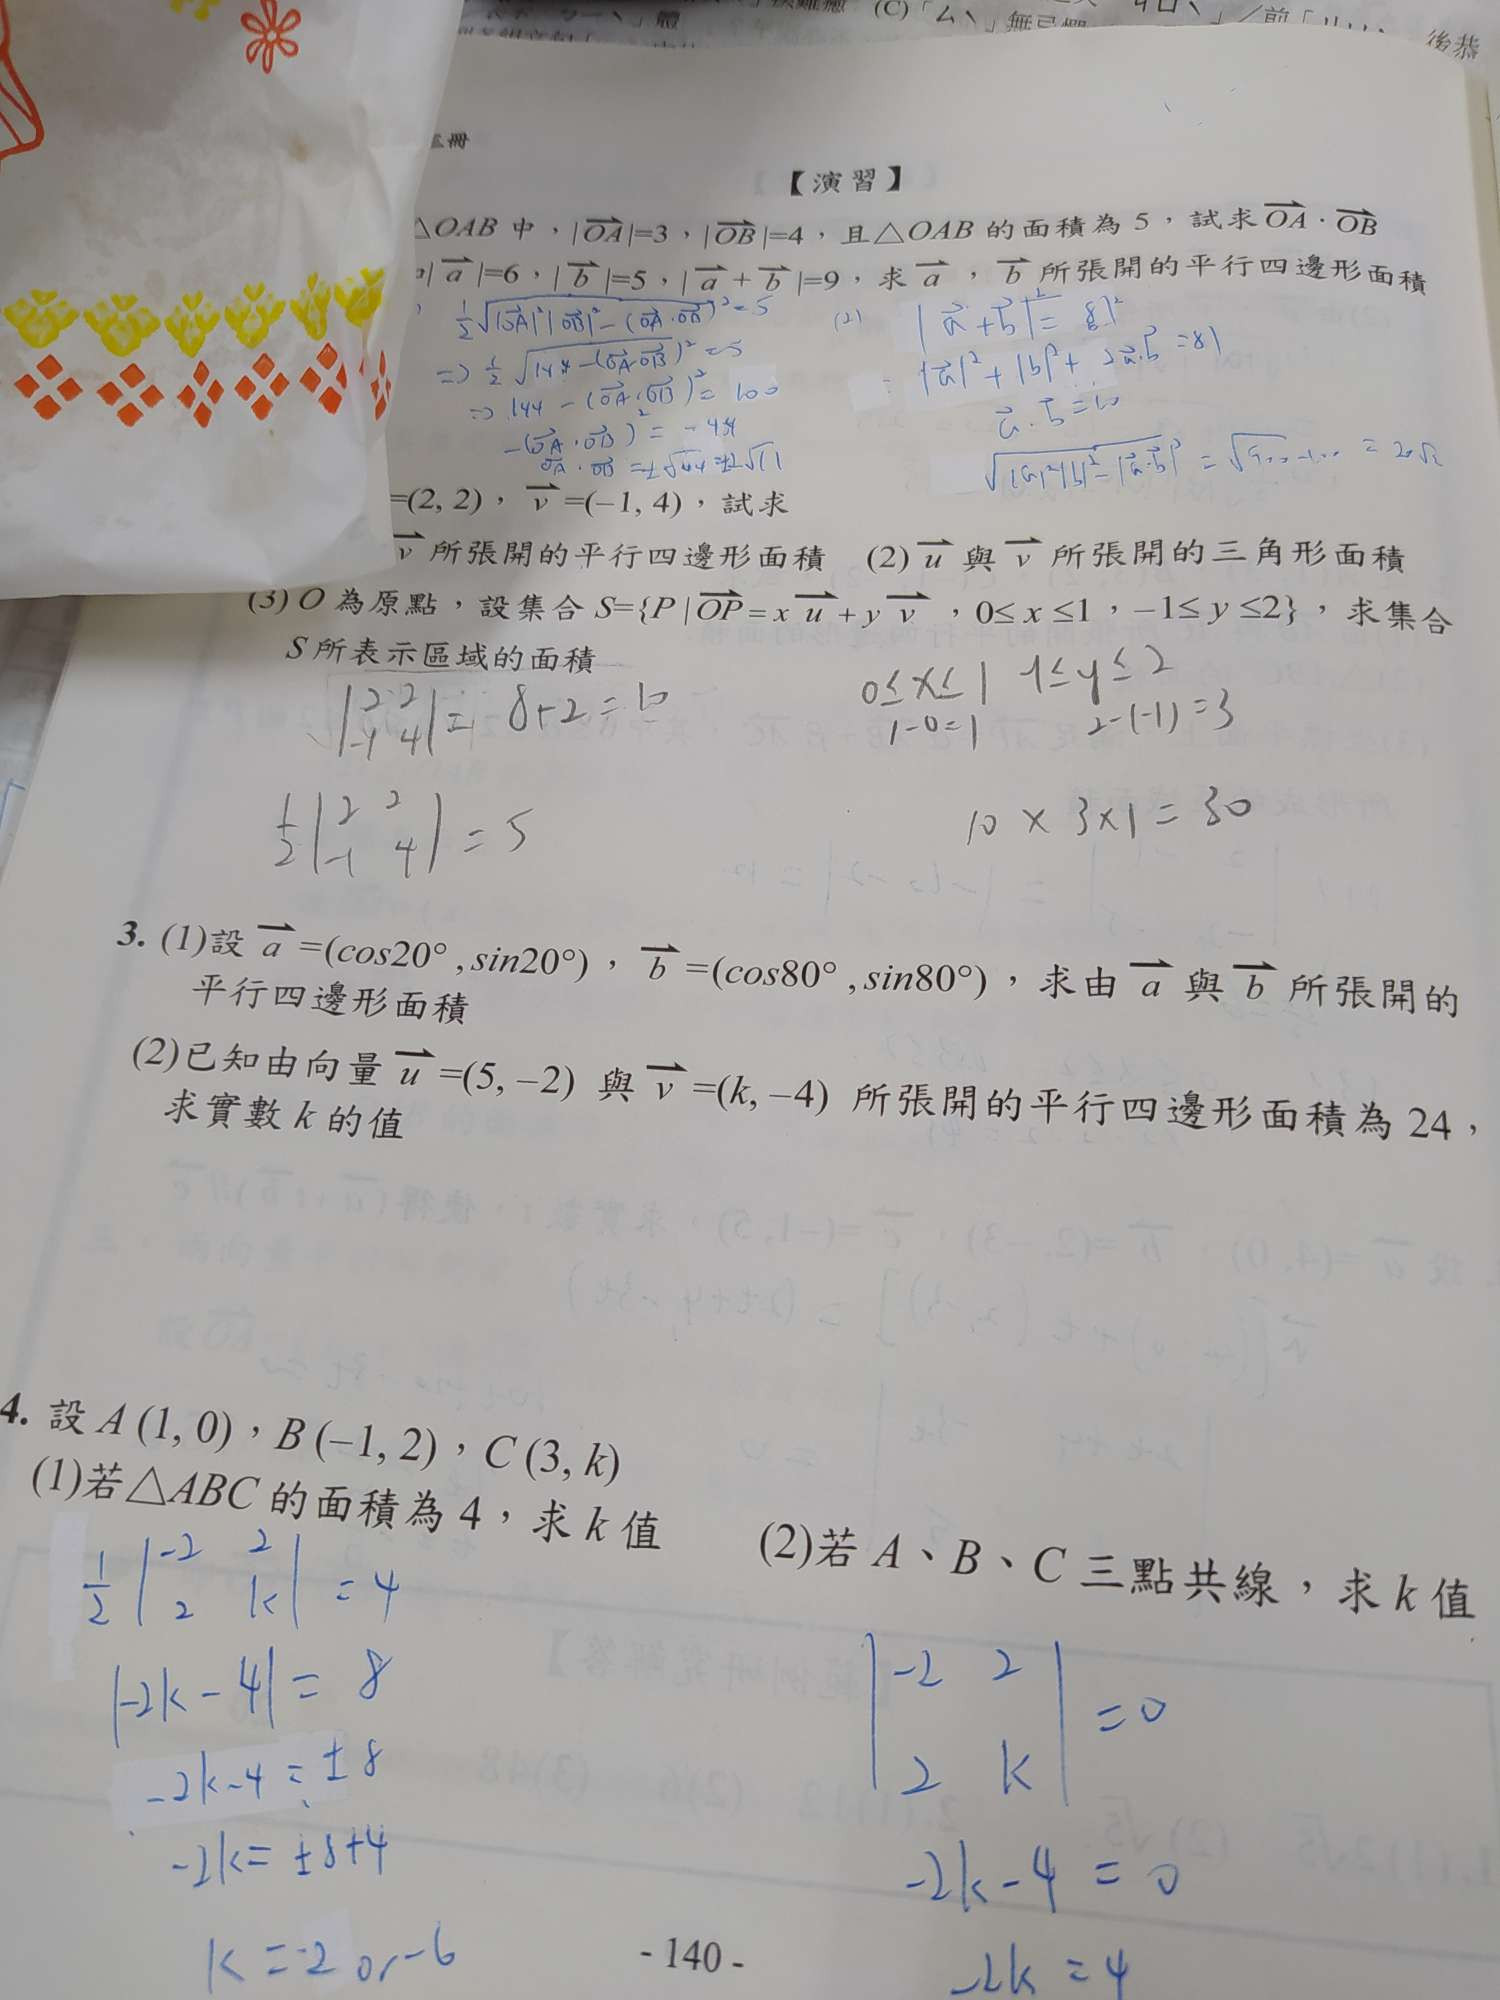 後恭
【演習】
△OAB 中，|OA|=3，|OB|=4，且△OAB 的面積為 5，試求 OA · OB
| a |=6，| b |=5，| a + b |=9，求 a ， b 所張開的平行四邊形面積
½√|OA|²|OB|²-(OA·OB)²=5
=> ½√144-(OA·OB)²=5
=> 144-(OA·OB)²=100
-(OA·OB)²=-44
OA·OB=±√44=±2√11
(2) |a+b|²=
|a|²+|b|²+2a·b=81
a·b=10
√|a|²|b|²-|a·b|²=√900-100=20√2
=(2, 2)， v =(–1, 4)，試求
v 所張開的平行四邊形面積 (2) u 與 v 所張開的三角形面積
(3) O 為原點，設集合 S={P | OP = x u + y v ，0≤ x ≤1，–1≤ y ≤2}，求集合
S 所表示區域的面積
|2 2|
|-1 4| = 8+2=10
0≤x≤1 -1≤y≤2
1-0=1 2-(-1)=3
½|2 2|
|-1 4| = 5
10×3×1=30
3. (1)設 a =(cos20°, sin20°)， b =(cos80°, sin80°)，求由 a 與 b 所張開的
平行四邊形面積
(2)已知由向量 u =(5, –2) 與 v =(k, –4) 所張開的平行四邊形面積為 24，
求實數 k 的值
4. 設 A (1, 0)，B (–1, 2)，C (3, k)
(1)若△ABC 的面積為 4，求 k 值
(2)若 A、B、C 三點共線，求 k 值
½|-2 2|
|2 k| =4
|-2k-4|=8
-2k-4=±8
-2k=±8+4
k=-2 or -6
|-2 2|
|2 k| =0
-2k-4=0
-2k=4
- 140 -